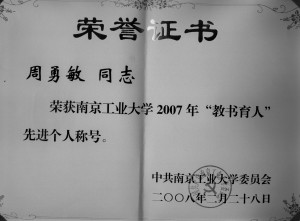 荣誉证书
周勇敏 同志
荣获南京工业大学 2007 年“教书育人”
先进个人称号。
中共南京工业大学委员会
二〇〇八年二月二十八日